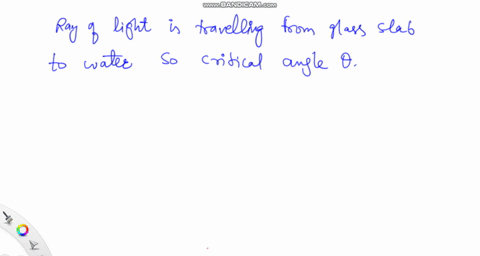 WWW.BANDICAM.COM
Ray of light is travelling from glass slab
to water so critical angle θ.